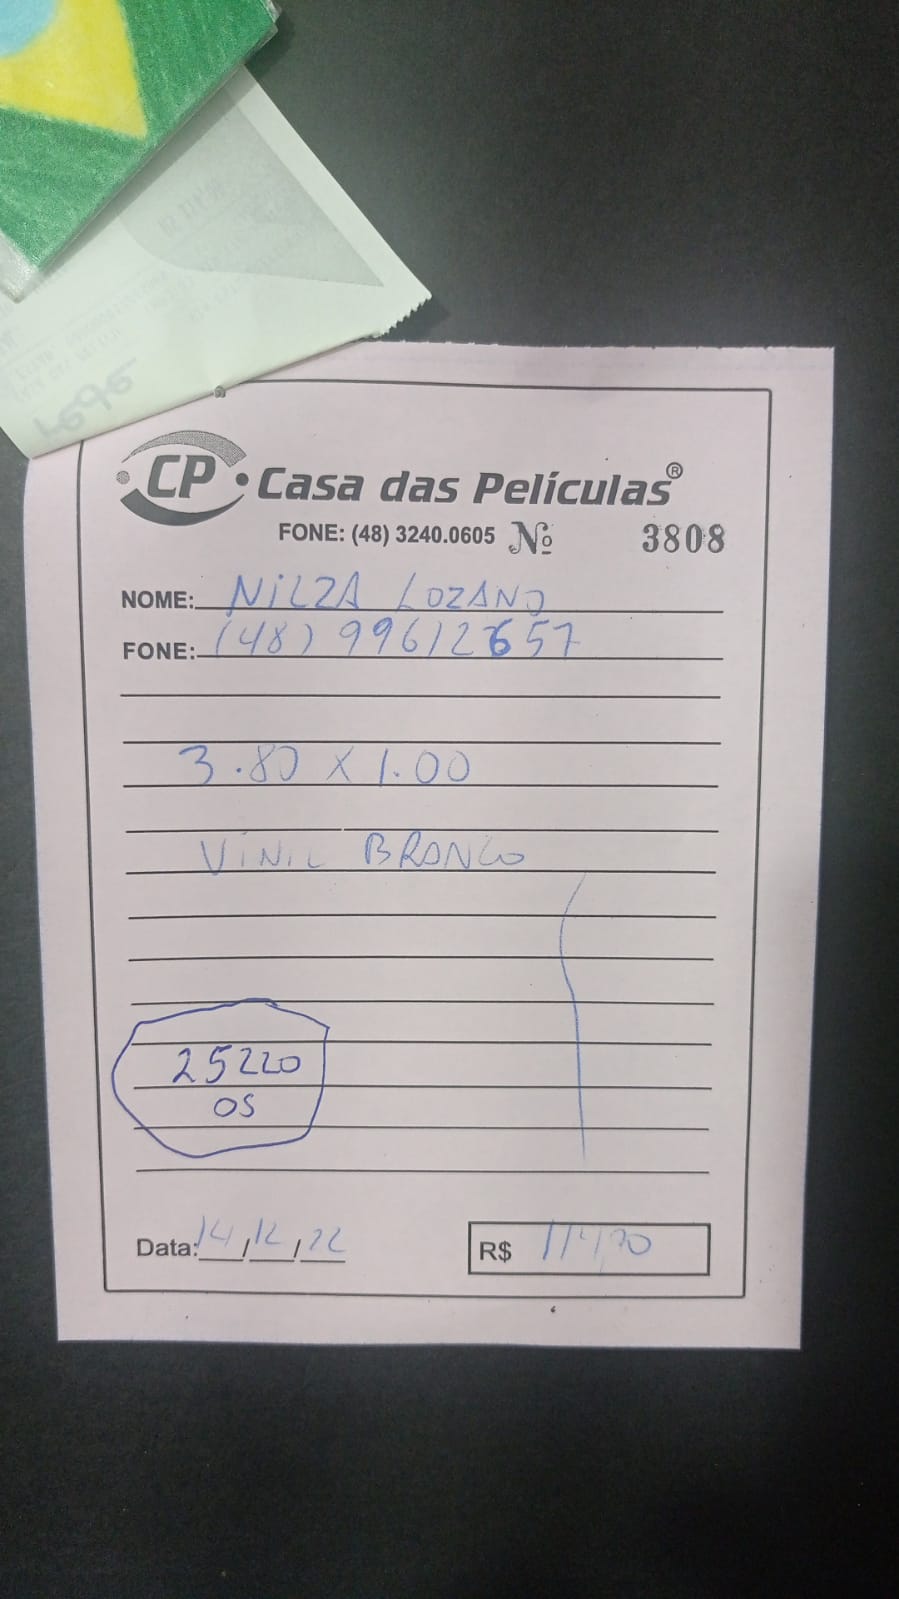 rede
CP Casa das Películas®
FONE: (48) 3240.0605 Nº 3808
NOME: NILZA LOZANO
FONE: (48) 99612657
3.80 x 1.00
VINIL BRANCO
25220
OS
Data: 14/12/22 R$ 114,00